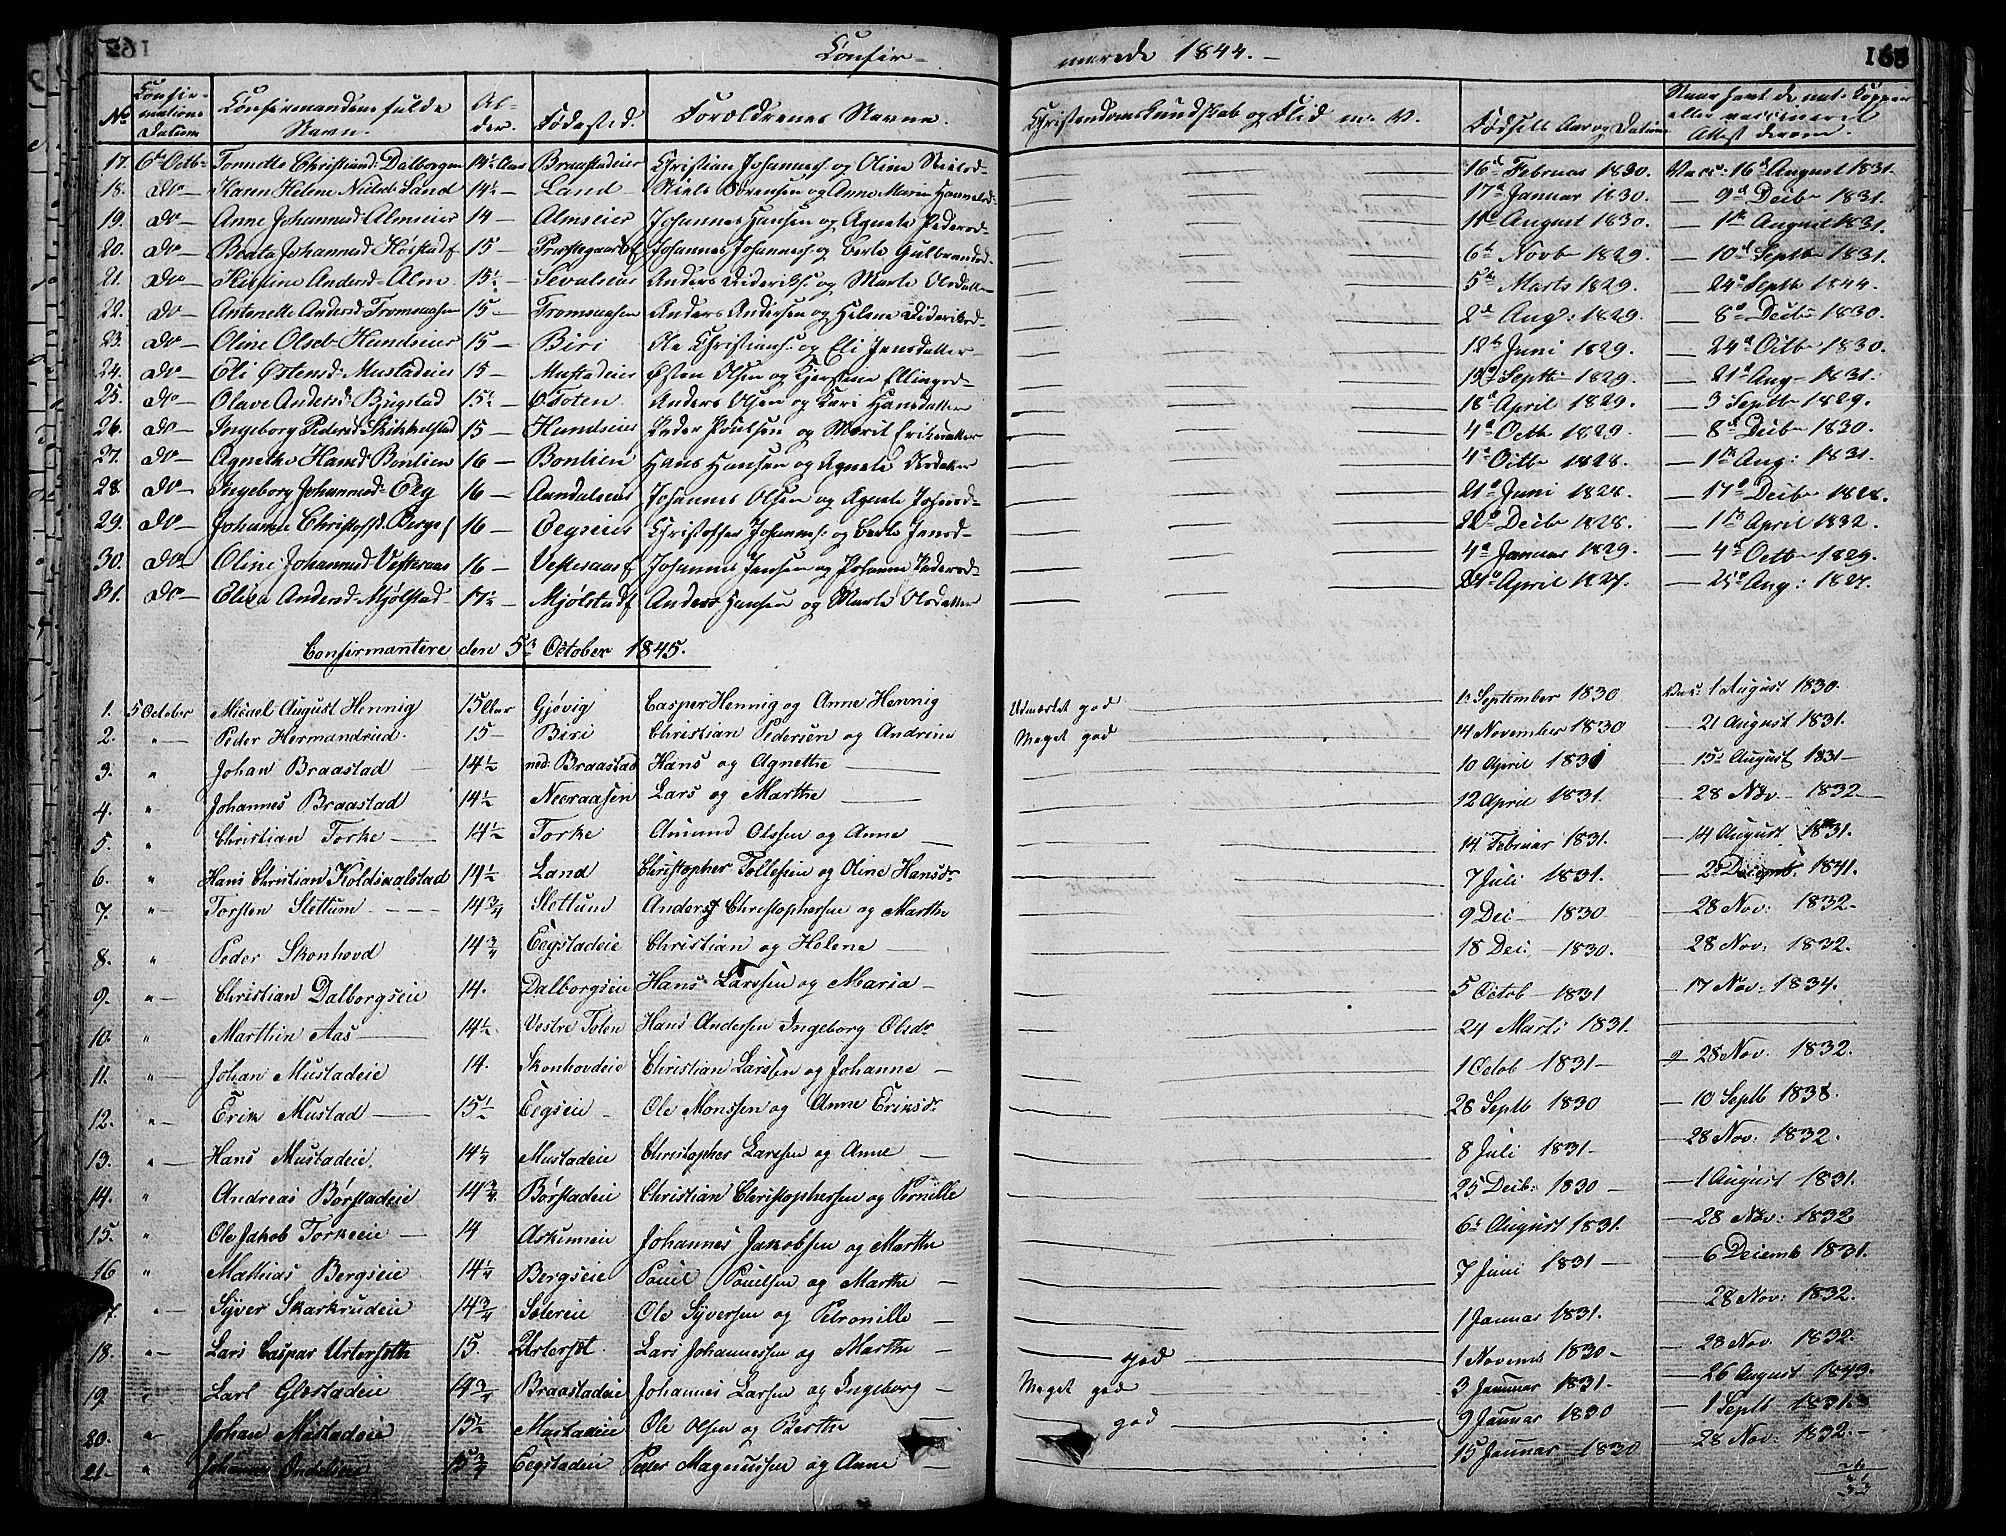 162
Confir-
merede 1844.
165
No
Confir-
mations
Datum
Confirmandens fulde
Navn.
Al-
der.
Fødested.
Forældrenes Navne.
Christendomskundskab og Flid m. v.
Fødsels Aar og Datum
Naar havt de nat. Kopper
eller vaccineret
Attest derom.
17. 6te Octb. Christiansd. Dalborgeie 14½ Aar Braastadeier Christian Johannes. og Oline Nielsd. 16d Februar 1830. Vacc: 16d August 1831.
18. do Karen Helene Nielsd. Land 14½ Land Niels Sørensen og Anne Marie 17d Januar 1830. 9d Decb 1831.
19. do Anne Johannesd. Almseier 14 Almseier Johannes Hansen og Agnete Pedersd. August 1830. August 1831.
20. do Beata Johannesd. 15 Johannes Johannes. og Berte Gulbrandsd. 6te Novb 1829. 10d Septb 1831.
21. do Andersd. Alm 15½ Anders Diderichs. og Marte Olsdatter 5te Marts 1829. 24d Septb 1844.
22. do Antonette Andersd. Tromsaasen 15 Tromsaasen Anders Andersen og Helene Dideriksd. 2d Aug: 1829. 8d Decb 1830.
23. do Oline Olsd. Hundseier 15 Biri Ole Christians. og Eli Jensdatter 12te Juni 1829. 24d Octb 1830.
24. do Eli Østensd. Mustadeier 15 Mustadeier Østen Olsen og Kjerstine Ellingsd. Septb 1829. 21d Aug 1831.
25. do Olave Andersd. Bjugstad 15½ O Toten Anders Olsen og Kari Hansdatter 18d April 1829. 3 Septb 1829.
26. do Ingeborg Pedersd. Skikkelstad 15 Hundseier Peder Poulsen og Marit Eriksdatter 4d Octb 1829. 8d Decb 1830.
27. do Agnethe Hansd. Bonlien 16 Bonlien Hans Hansen og Agnete Olsdatter 4d Octb 1828. 1te Aug: 1831.
28. do Ingeborg Johannesd. Eeg 16 Aandalseier Johannes Olsen og Agnete 21d Juni 1828. 17d Decb 1828.
29. do Johanne Christoffsd. Bergs 16 Eegseier Christoffer Johannes. og Berte Jensd. 22d Decb 1828. 1te April 1832.
30. do Oline Johannesd. Vesteraas 16 Vesteraas Johannes Jensen og Johanne Pedersd. 4d Januar 1829. 4d Octb 1829.
31. do Elisa Andersd. Mjølstad 17½ Mjølstad Anders Hansen og Marte Olsdatter April 1827. 25d Aug: 1827.
Confirmantere den 5te October 1845.
1. 5 October Micael August Hennig 15 Aar Gjøvig Casper Hennig og Anne Hennig Udmærket god September 1830 Vac: 1 August 1830.
2. " Peder Hermandrud. 15 Biri Christian Pedersen og Andrine Meget god 14 November 1830 21 August 1831.
3. " Johan Braastad 14½ ned: Braastad Hans og Agnethe 10 April 1831 15 August 1831
4. " Johannes Braastad 14½ Neeraasen Lars og Marthe 12 April 1831. 28 Nov 1832.
5. " Christian Torke 14½ Torke Amund Olssen og Anne 14 Februar 1831. 14 August 1831.
6. " Hans Christian Koldsvalstad 14½ Land Christopher Tollefsen og Oline Hansdr. 7 Juli 1831. 2 Decemb. 1841.
7. " Torsten Slettum 14¾ Slettum Anders Christophersen og Marthe 9 Dec 1830 28 Nov: 1832.
8. " Peder Skonhovd 14¾ Eegstadeie Christian og Helene 18 Dec. 1830. 28 Nov: 1832.
9. " Christian Dalborgseie 14. Dalborgseie Hans Larssen og Maria 5 Octob 1831 17 Nov: 1834.
10. " Marthin Aas 14½ Vestre Toten Hans Andersen Ingeborg Olsdr. 24 Marts 1831.
11. " Johan Mustadeie 14. Skonhovdeie Christian Larssen og Johanne 1 Octob 1831 28 Nov. 1832.
12. " Erik Mustad 15½ Eegseie Ole Monssen og Anne Eriksdr. 28 Septb 1830 10 Septb 1838.
13. " Hans Mustadeie. 14¼ Mustadeie Christopher Larssen og Anne 8 Juli 1831. 28 Nov: 1832.
14. " Andreas Børstadeie 14¾ Børstadeie Christian Christophersen og Pernille 25 Decb: 1830 1 August 1831.
15. " Ole Jakob Torkeeie 14 Askimeie Johannes Jakobsen og Marthe 6te August 1831. 28 Nov: 1832
16 " Mathias Bergseie 14¼ Bergseie Pouel Pouelsen og Marthe 7 Juni 1831 6 Decemb 1831.
17. " Syver Skarkrudeie 14¾ Solereie Ole Syversen og Petronille 1 Januar 1831. 28 Nov: 1832.
18. " Lars Caspar 15. Lars Johannessen og Marthe god 1 Novemb 1830 28 Nov. 1832.
19. " Glæstadeie 14¾ Braastadeie Johannes Larsen og Ingeborg Meget god 3 Januar 1831. 26 August 1843.
20. " Johan Mustadeie 15½ Mustadeie Ole Olsen og Berthe god 9 Januar 1830 1 Septb 1831.
21 " 15¾ Eegstadeie Peder Magnussen og Anne 15 Januar 1830 28 Nov: 1832.